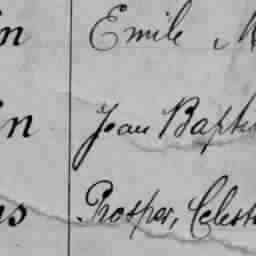 in Emile M
in Jean Bapti
us Prosper, Celest